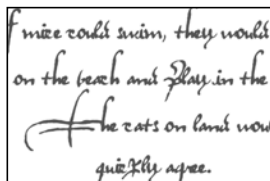 f mice could swim, they would
on the beach and play in the
The cats on land wou
quickly agree.